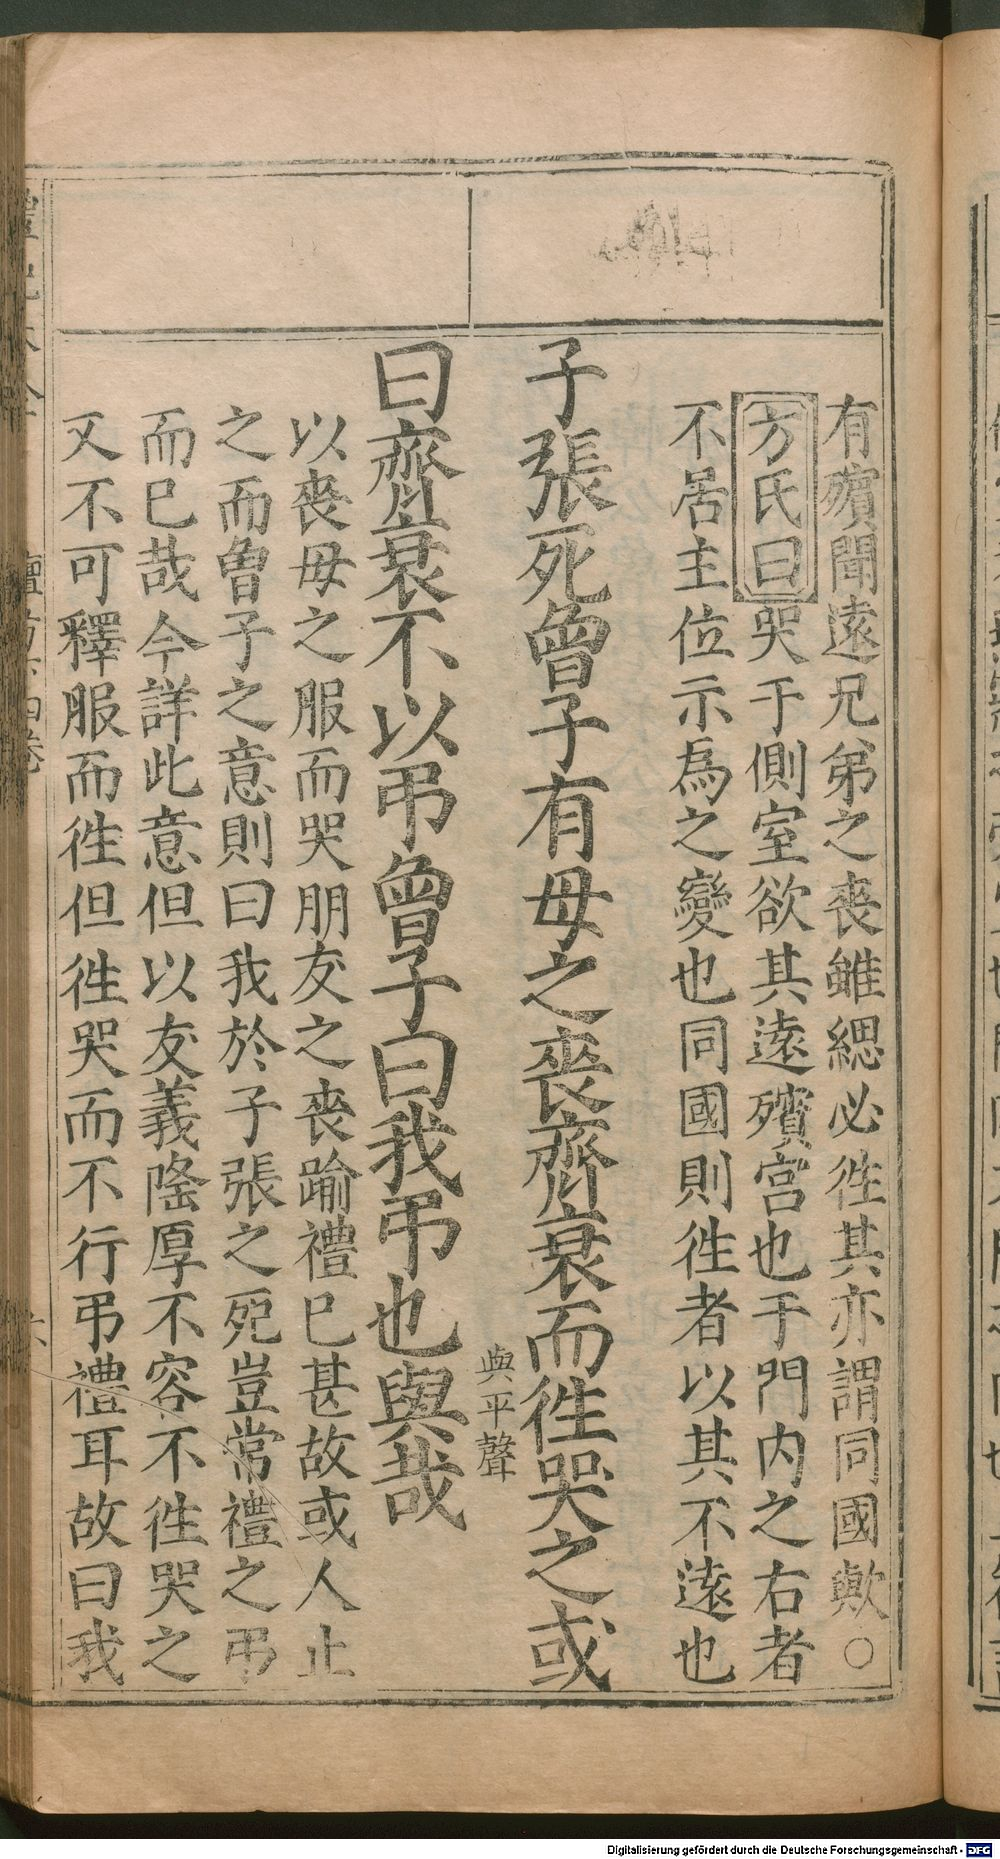 有殯聞遠兄弟之喪雖緦必徃其亦謂同國歟○
方氏曰哭于側室欲其遠殯宮也于門内之右者
不居主位示爲之變也同國則徃者以其不遠也
子張死曾子有母之喪齊衰而徃哭之或
與平聲
曰齊衰不以弔曾子曰我弔也與哉
以喪母之服而哭朋友之喪踰禮已甚故或人止
之而曾子之意則曰我於子張之死豈常禮之弔
而已哉今詳此意但以友義隆厚不容不徃哭之
又不可釋服而徃但徃哭而不行弔禮耳故曰我
檀弓下四卷
六
Digitalisierung gefördert durch die Deutsche Forschungsgemeinschaft - DFG